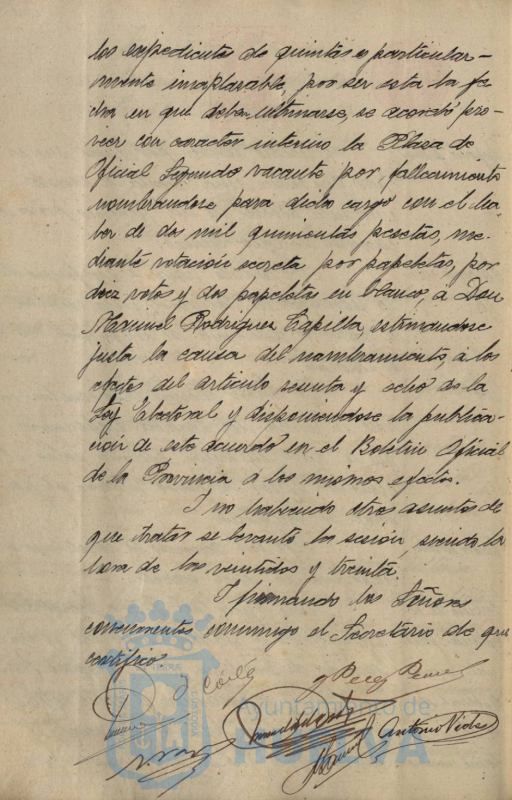 los expedientes de quintas y particular-
mente inaplazable, por ser esta la fe
cha en que deben ultimarse, se acordó pro-
veer con caracter interino la Plaza de
Oficial Segundo vacante por fallecimiento
nombrandose para dicho cargo con el ha
ber de dos mil quinientas pesetas, me-
diante votación secreta por papeletas, por
diez votos y dos papeletas en blanco, a Don
Manuel Rodriguez Capilla estimandose
justa la causa del nombramiento, a los
efectos del articulo sesenta y ocho de la
Ley Electoral y disponiendose la publica-
ción de este acuerdo en el Boletin Oficial
de la Provincia a los mismos efectos.
Y no habiendo otros asuntos de
que tratar se levantó la sesión, siendo la
hora de las veintidos y treinta.
Y firmando los Señores
concurrentes conmigo el Secretario de que
certifico
Antonio
Ayuntamiento de
HUELVA